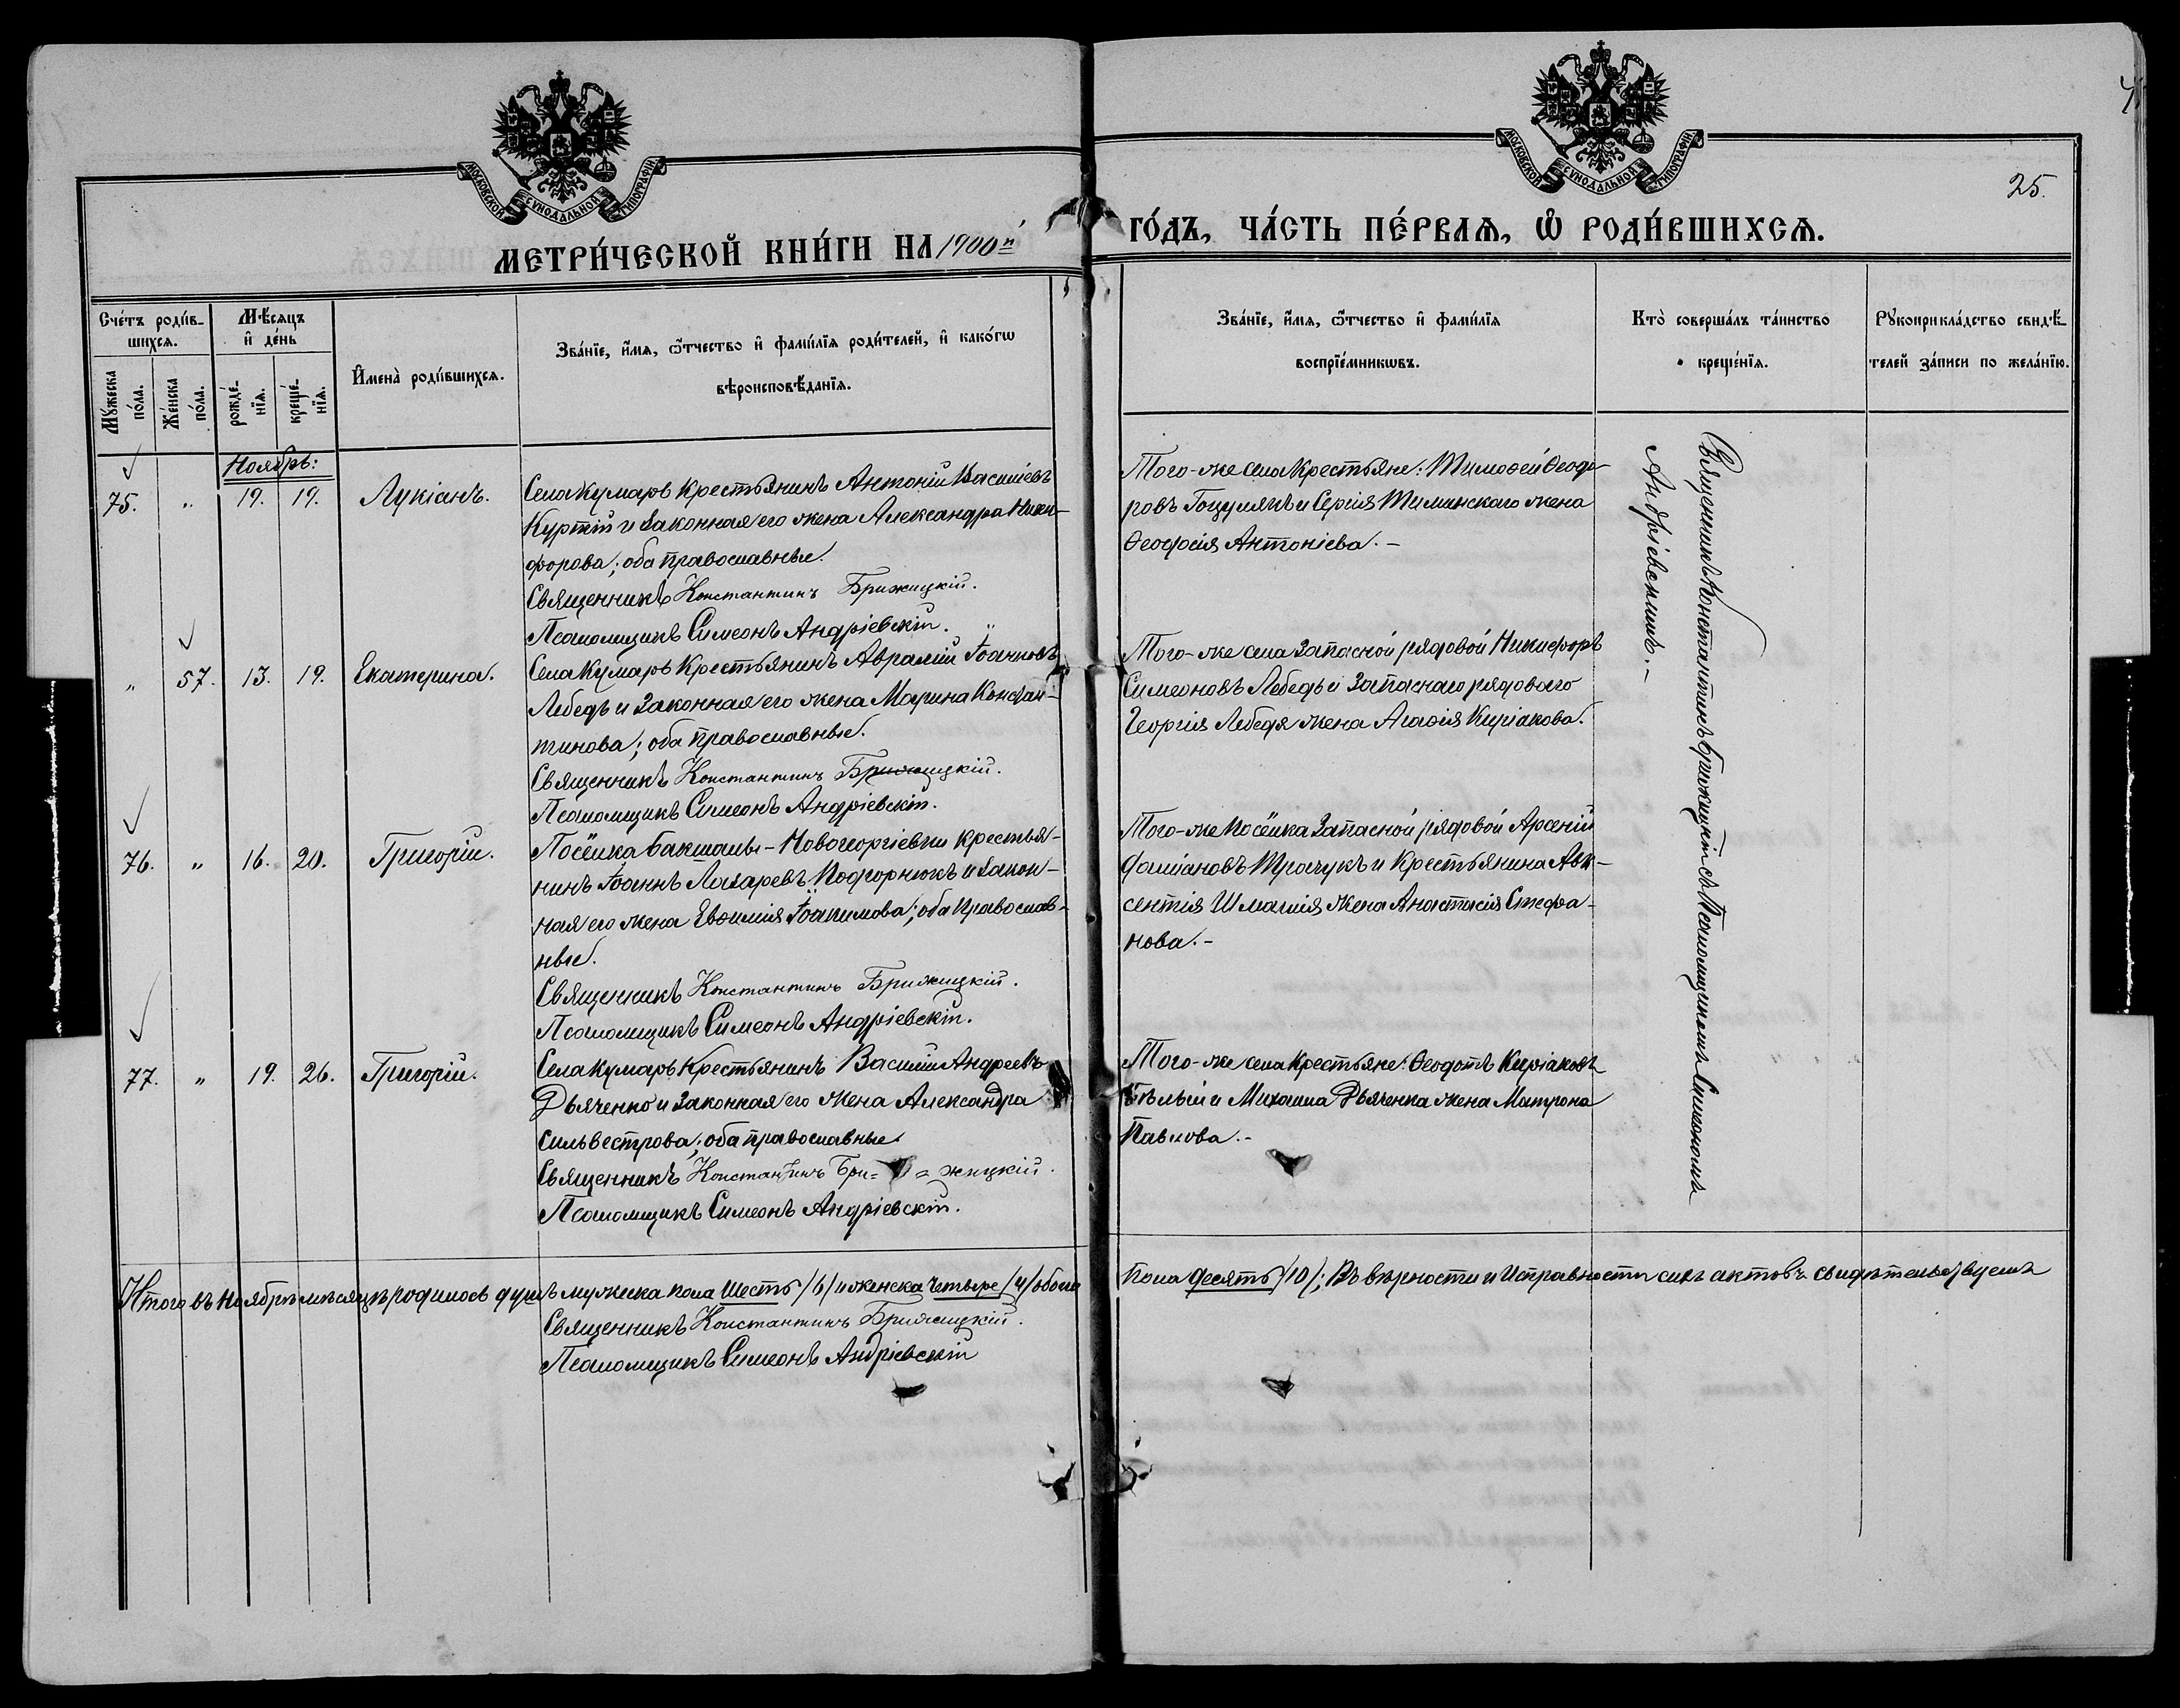 МОСКОВСКОЙ СУНОДАЛЬНОЙ ТИПОГРАФІИ
МОСКОВСКОЙ СУНОДАЛЬНОЙ ТИПОГРАФІИ
25.
МЕТРИ́ЧЕСКОЙ КНИ́ГИ НА 1900й ГО́ДЪ, ЧА́СТЬ ПЕ́РВАѦ, Ѽ РОДИ́ВШИХСѦ.
Сче́тъ роди́в-
шихсѧ.
Мѣ́сяцъ
и҆ де́нь
Мꙋ́жеска по́ла.
Же́нска по́ла.
рожде́-
нїѧ.
креще́-
нїѧ.
И҆мена̀ роди́вшихсѧ.
Зва́нїе, и҆́мѧ, ѻ҆́тчество и҆ фами́лїѧ роди́телей, и҆ како́гѡ
вѣроисповѣ́данїѧ.
Зва́нїе, и҆́мѧ, ѻ҆́тчество и҆ фами́лїѧ
воспрїе́мникѡвъ.
Кто̀ соверша́лъ та́инство
креще́нїѧ.
Рꙋкоприкла́дство свидѣ́-
телей за́писи по жела́нїю.
Ноябрь:
75. " 19. 19. Лукіанъ.
Села Кумаръ Крестьянинъ Антоній Василіевъ
Куртій и законная его жена Александра Ники-
форова; оба православные.
Священникъ Константинъ Брижицкій.
Псаломщикъ Симеонъ Андріевскій.
Того-же села Крестьяне: Тимоѳей Ѳеодо-
ровъ Гоцулякъ и Сергія Тиминскаго жена
Ѳеодосія Антоніева.-
" 57. 13. 19. Екатерина.
Села Кумаръ Крестьянинъ Аврамій Іоанновъ
Лебедь и законная его жена Марина Констан-
тинова; оба православные.
Священникъ Константинъ Брижицкій.
Псаломщикъ Симеонъ Андріевскій.
Того-же села запасной рядовой Никифоръ
Симеоновъ Лебедь и запаснаго рядоваго
Георгія Лебедя жена Агаѳія Киріакова.
76. " 16. 20. Григорій.
Посёлка Бакшалы-Новогеоргіевки крестья-
нинъ Іоаннъ Лазаревъ Подгорнюкъ и закон-
ная его жена Евѳимія Іоакимова; оба православ-
ные.
Священникъ Константинъ Брижицкій.
Псаломщикъ Симеонъ Андріевскій.
Того-же посёлка запасной рядовой Арсеній
Даміановъ Трачукъ и Крестьянина Авк-
сентія Шмаглія жена Анастасія Стефа-
нова.-
77. " 19. 26. Григорій.
Села Кумаръ Крестьянинъ Василій Андреевъ
Дьяченко и законная его жена Александра
Сильвестрова; оба православные.
Священникъ Константинъ Бри= =жицкій.
Псаломщикъ Симеонъ Андріевскій.
Того-же села Крестьяне: Ѳеодотъ Киріаковъ
Бѣлый и Михаила Дьяченка жена Матрона
Павлова.-
Священникъ Константинъ Брижицкій съ Псаломщикомъ Симеономъ
Андріевскимъ.-
Итого въ Ноябрѣ мѣсяцѣ родилось душъ мужеска пола Шесть /6/ и женска Четыре /4/ обоего пола десять /10/; Въ вѣрности и исправности сихъ актовъ свидѣтельствуемъ
Священникъ Константинъ Брижицкій.
Псаломщикъ Симеонъ Андріевскій